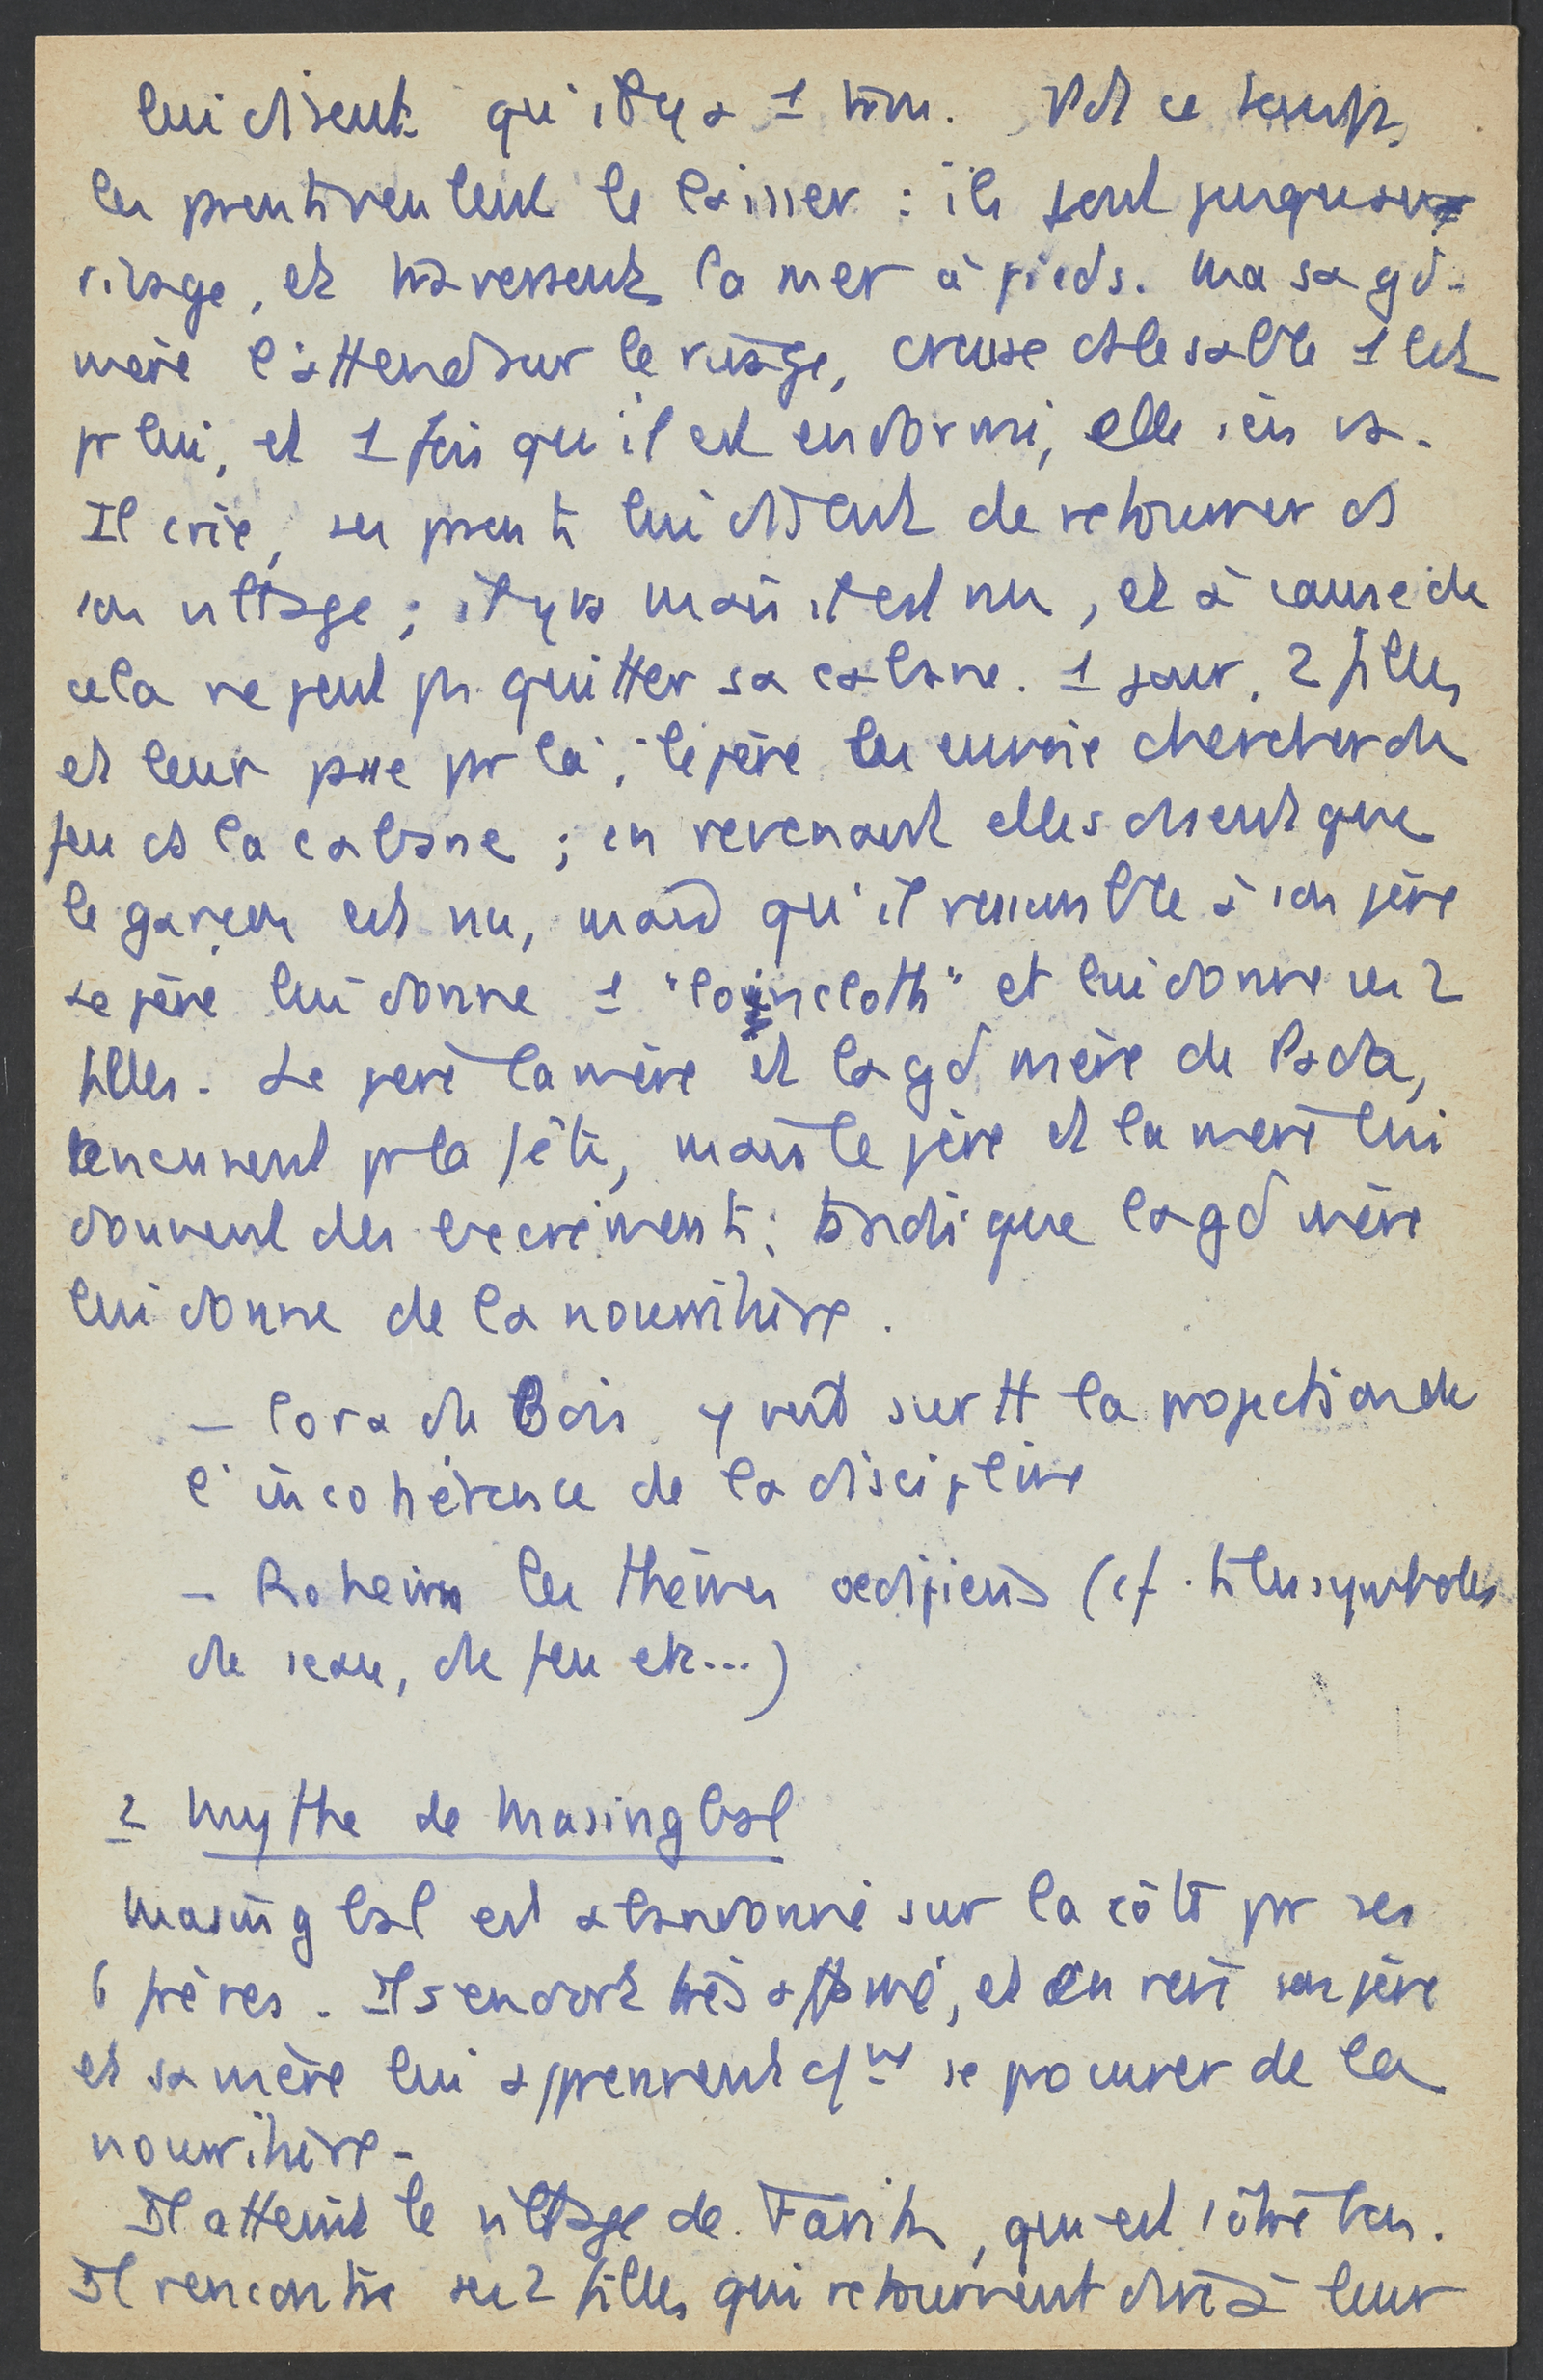 lui disent qu'il y a 1 trou. Pdt ce temps,
les parents veulent le laisser : ils vont jusqu'au
rivage, et traversent la mer à pieds. Ma sa gd-
mère l'attend sur le rivage, creuse ds le sable 1 lit
pr lui, et 1 fois qu'il est endormi, elle s'en va.
Il crie, ses parents lui disent de retourner ds
son village ; il y va mais il est nu, et à cause de
cela ne peut pas quitter sa cabane. 1 jour, 2 filles
et leur père passe par là ; le père les envoie chercher du
feu ds la cabane ; en revenant elles disent que
le garçon est nu, mais qu'il ressemble à son père
Le père lui donne 1 "loincloth" et lui donne ses 2
filles. Le père la mère et la gd mère de Pada,
reviennent pr la fête, mais le père et la mère lui
donnent des excréments ; tandis que la gd mère
lui donne de la nourriture.
– Cora du Bois y voit surtt la projection de
l'incohérence de la discipline
– Roheim les thèmes oedipiens (cf. ts les symboles
de seau, de feu etc...)
2 Mythe de Masingbal
Masingbal est abandonné sur la côte par ses
6 frères. Il s'endort très affamé, et en rêve son père
et sa mère lui apprennent cmt se procurer de la
nourriture -
Il atteint le village de
Il rencontre ses 2 filles qui retournent dire à leur